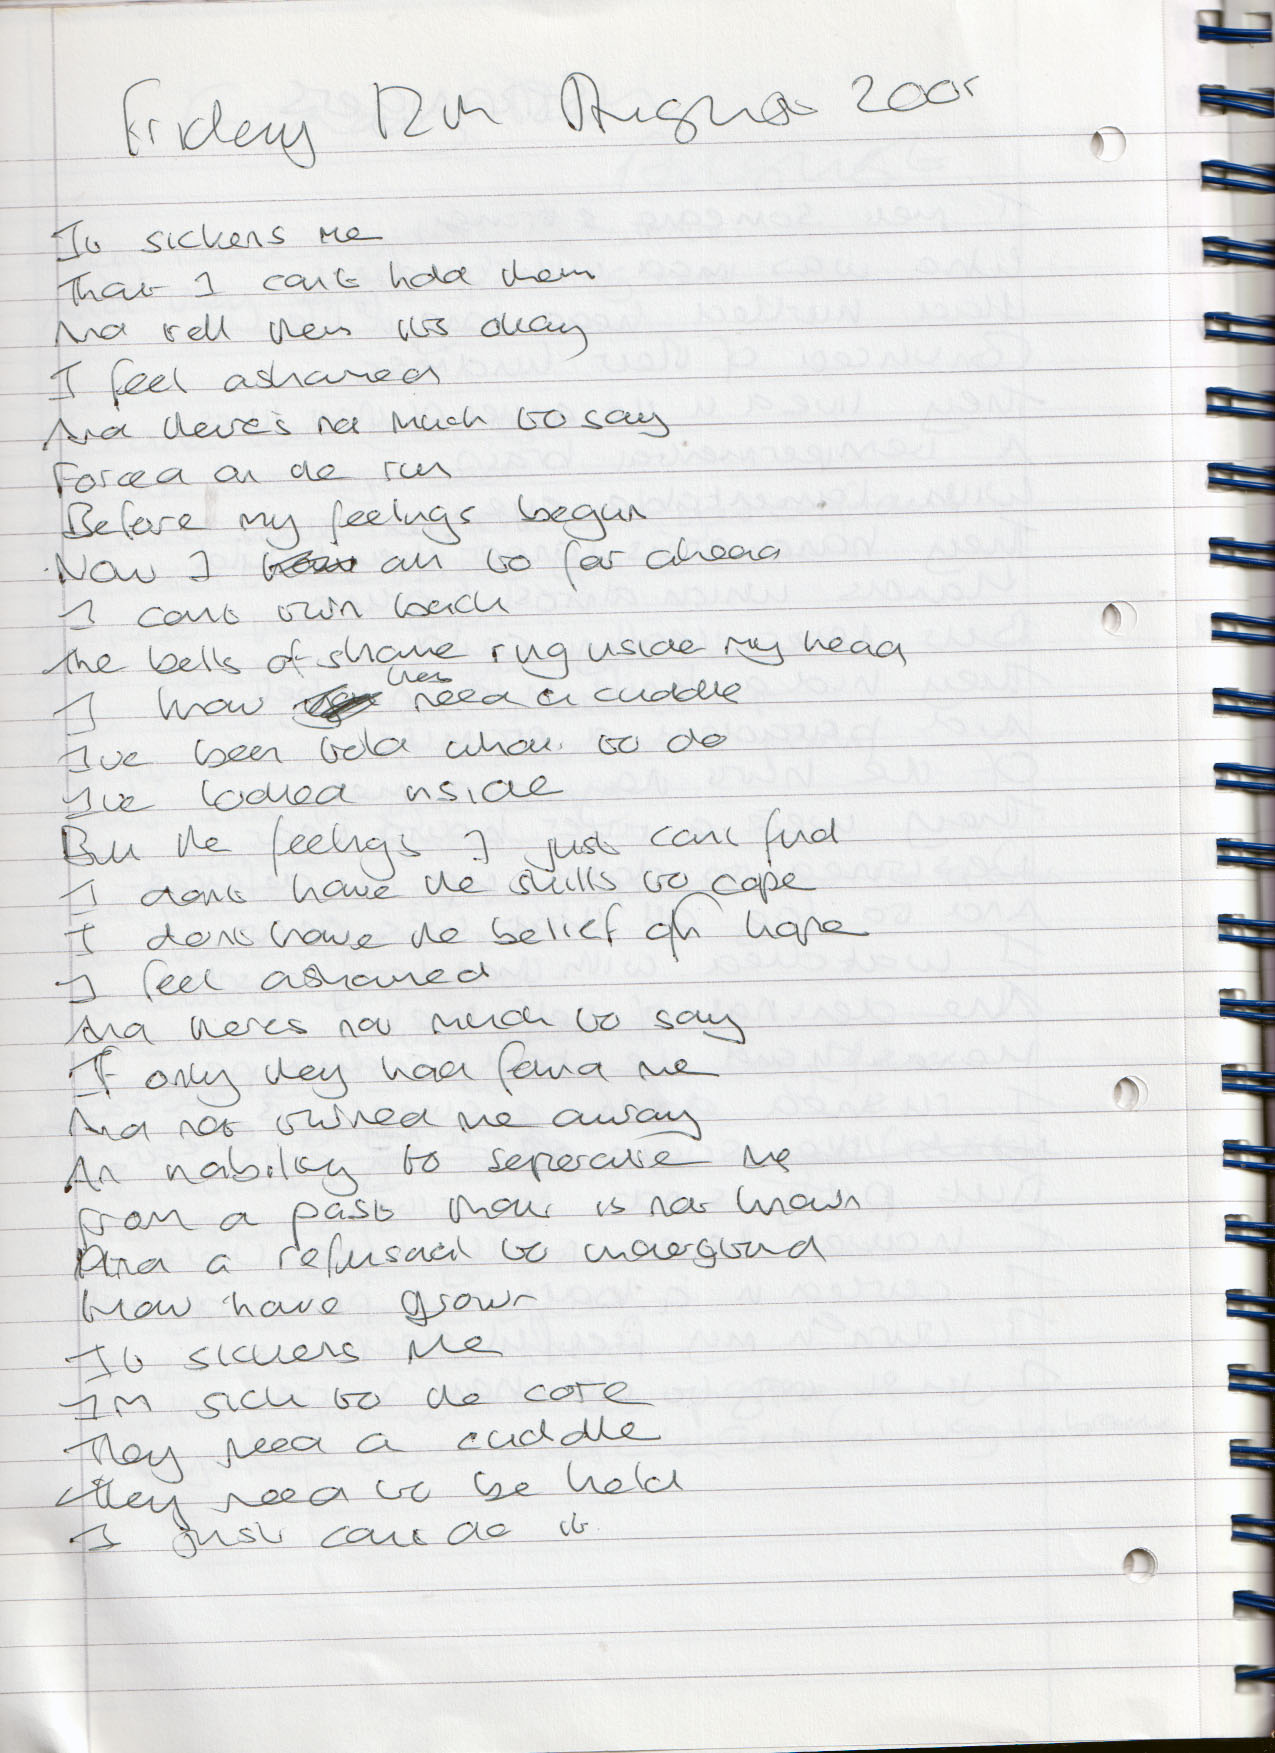 Friday 12th August 2005
It sickens me
That I cant hold them
And tell them its okay
I feel ashamed
And there's not much to say
Forced on the run
Before my feelings begun
Now I am to far ahead
I cant turn back
The bells of shame ring inside my head
I know they need a cuddle
I've been told what to do
I've looked inside
But the feelings I just cant find
I dont have the skills to cope
I dont have the belief of hope
I feel ashamed
And theres not much to say
If only they had found me
And not turned me away
An inability to seperate me
from a past that is not known
And a refusal to understand
how I have grown
It sickens me
Im sick to the core
They need a cuddle
They need to be held
I just cant do it